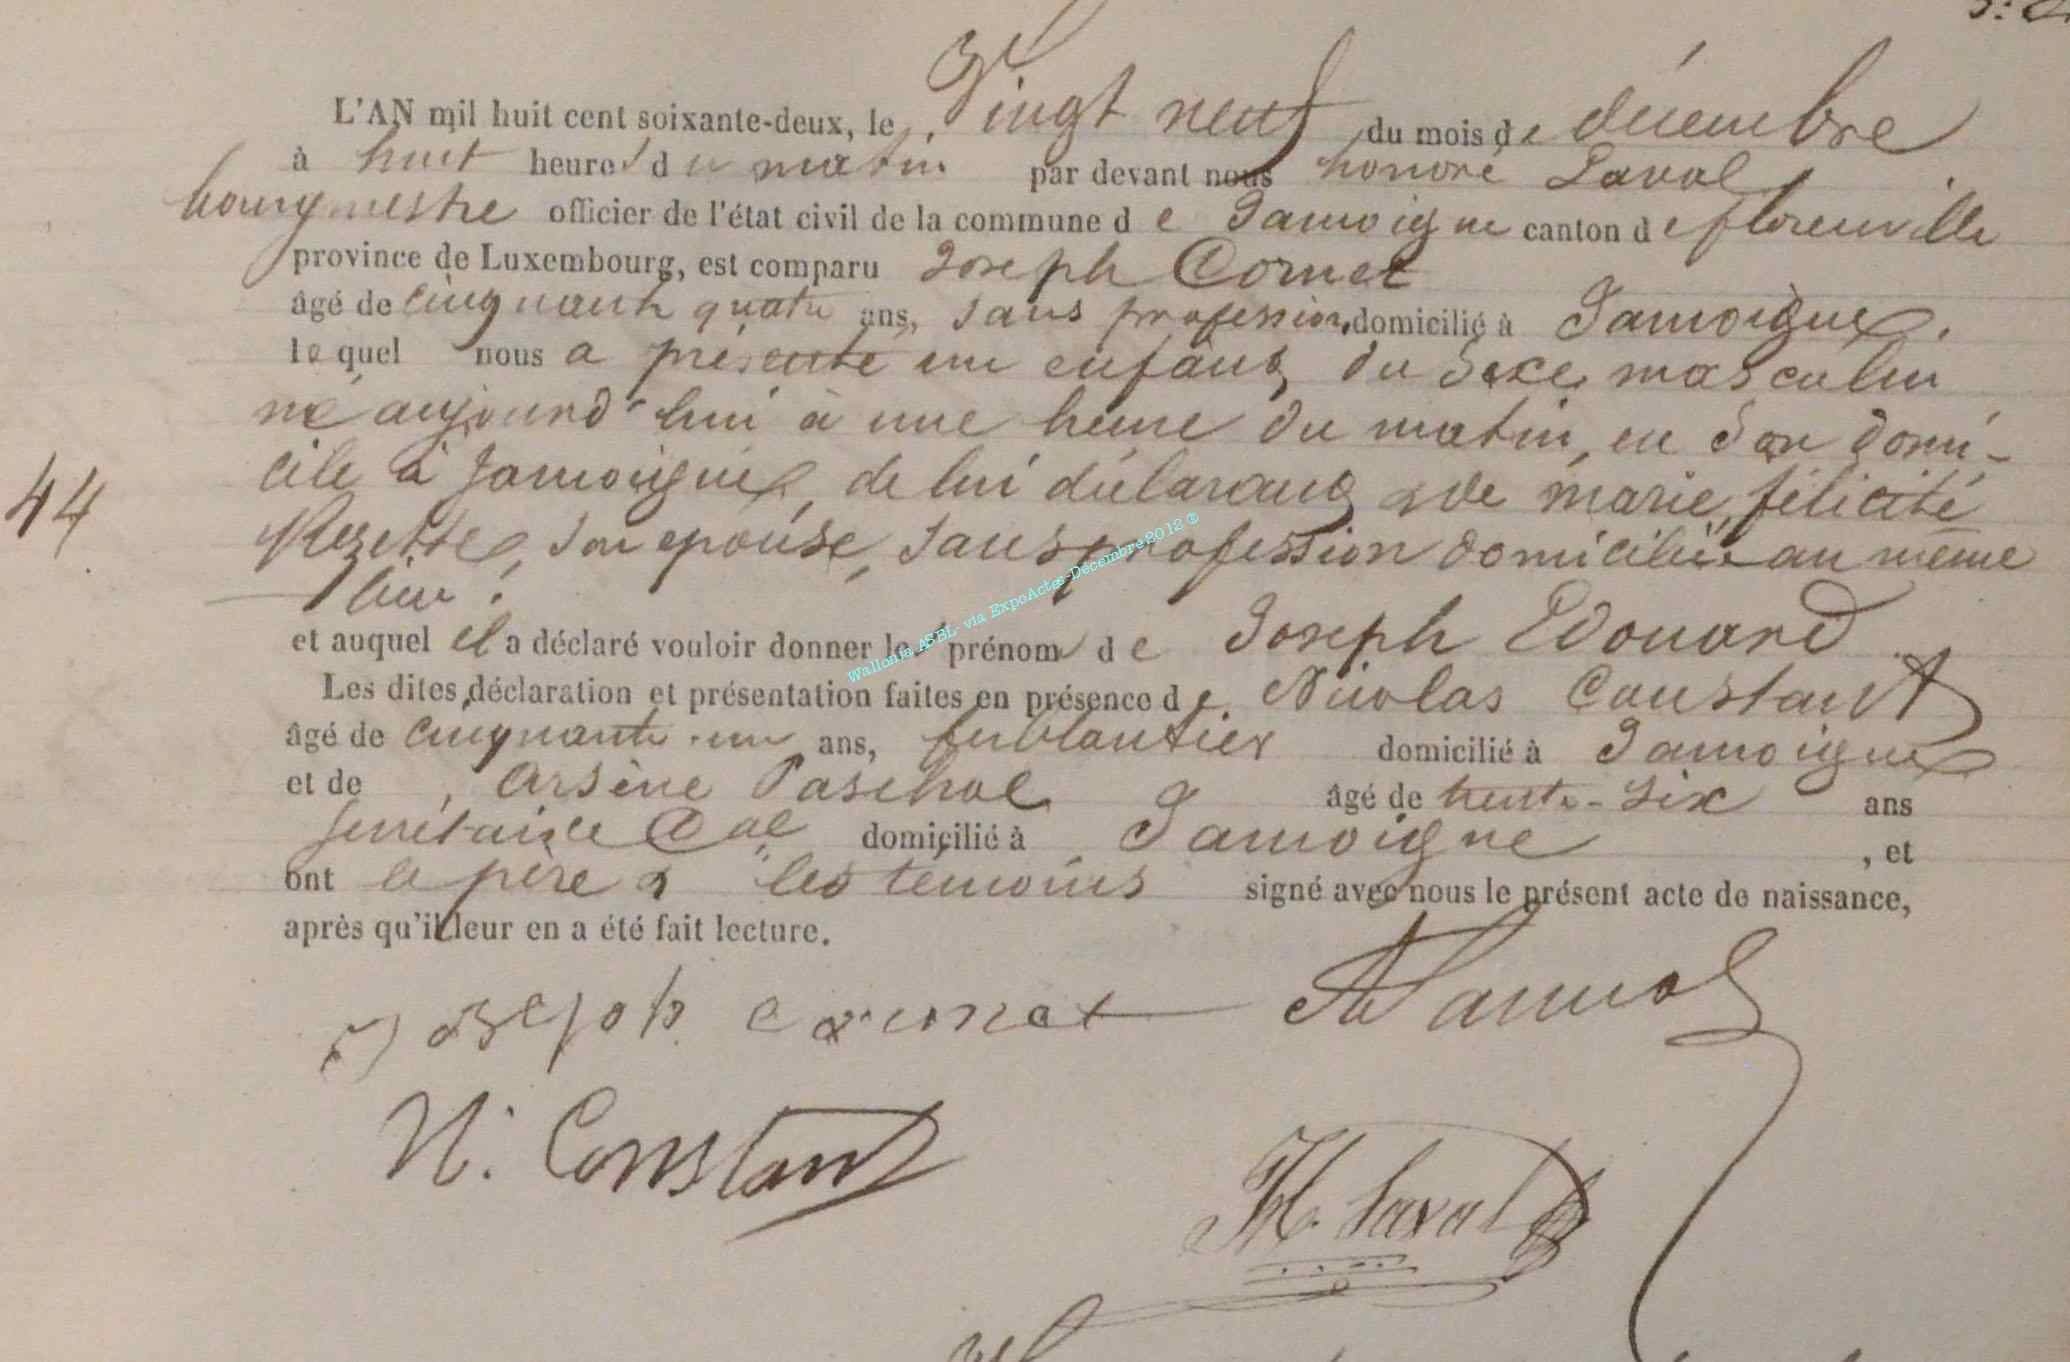 L'AN mil huit cent soixante-deux, le Vingt neuf du mois de décembre
à huit heures du matin par devant nous honoré Laval
bourgmestre officier de l'état civil de la commune de Jamoigne canton de florenville
province de Luxembourg, est comparu Joseph Cornet
âgé de cinquante quatre ans, sans profession, domicilié à Jamoigne.
lequel nous a présenté un enfant du Sexe masculin
né aujourd'hui à une heure du matin, en Son domi-
cile à Jamoigne, de lui déclarant & de marie félicité
44
Rezette, son epouse, sans profession domiciliée au même
lieu.
et auquel il a déclaré vouloir donner les prénom de Joseph Edouard
Les dites déclaration et présentation faites en présence de Nicolas Constant
âgé de cinquante-un ans, ferblantier domicilié à Jamoigne
et de Arsène Paschal âgé de trente-six ans
Secrétaire Cal domicilié à Jamoigne, et
ont le père & les témoins signé avec nous le présent acte de naissance,
après qu'il leur en a été fait lecture.
N. Constant
H. Laval
Wallonia ASBL- via ExpoActes-Décembre 2012 ®